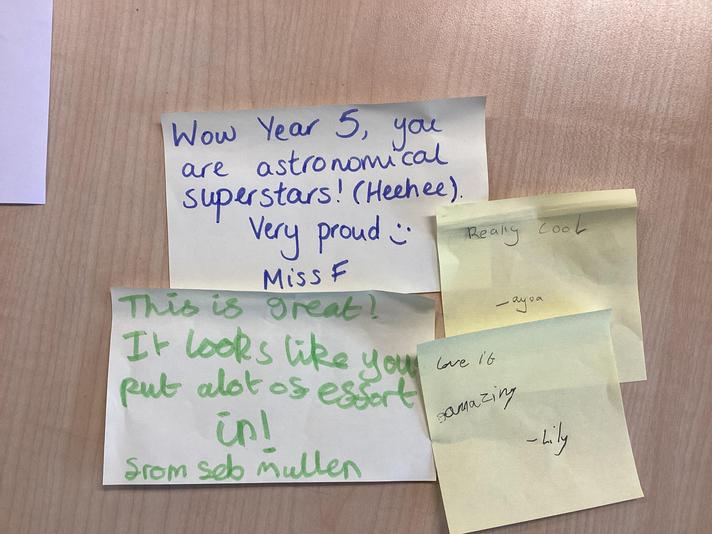 Wow Year 5, you
are astronomical
superstars! (Heehee).
Very proud :)
Miss F
This is great!
It looks like you
put alot os essort
in!
srom seb mullen
Really cool
- ayoa
Love it
amazing
- Lily